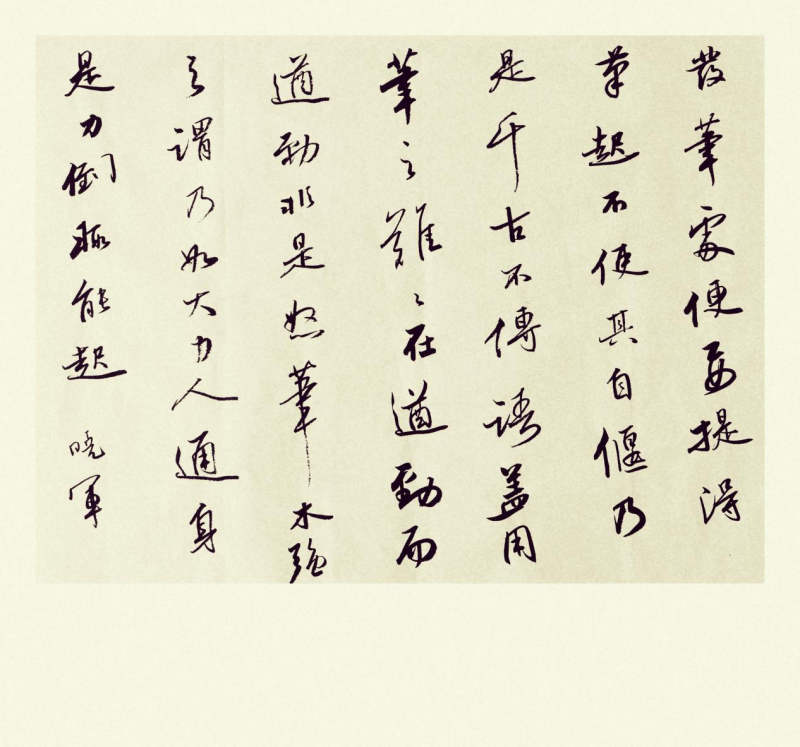 發筆處便要提得
筆起不使其自偃乃
是千古不傳語蓋用
筆之難々在遒勁而
遒勁非是怒筆木強
之謂乃如大力人通身
是力倒輒能起 曉軍